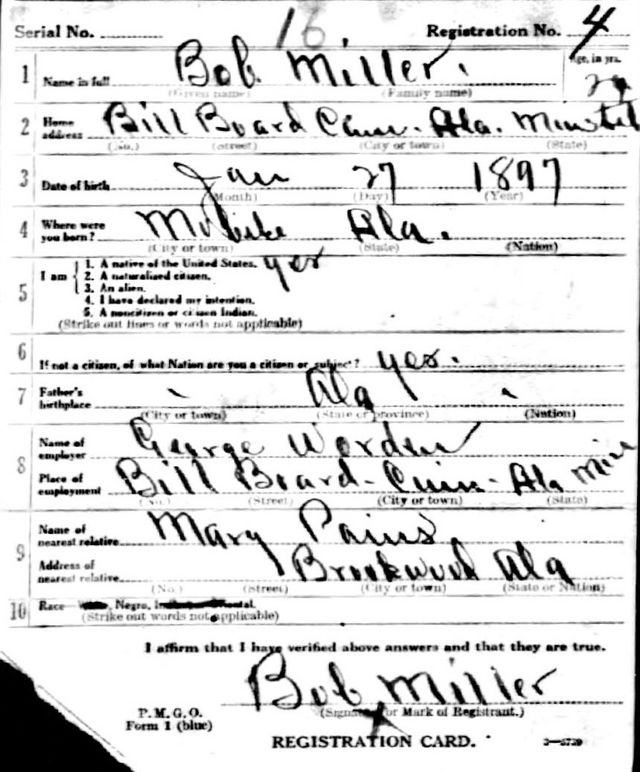 Serial No. 16 Registration No. 4
1 Name in full Bob Miller. Age, in yrs.
(Given name) (Family name)
2 Home address Bill Board Cinn. Ala. Minstrel
(No.) (Street) (City or town) (State)
3 Date of birth Jan 27 1897
(Month) (Day) (Year)
4 Where were you born? Mobile Ala.
(City or town) (State) (Nation)
5 I am 1. A native of the United States. yes
2. A naturalized citizen.
3. An alien.
4. I have declared my intention.
5. A noncitizen or citizen Indian.
(Strike out lines or words not applicable)
6 If not a citizen, of what Nation are you a citizen or subject? yes.
7 Father's birthplace Ala
(City or town) (State or province) (Nation)
8 Name of employer George Worden
Place of employment Bill Board - Cinn - Ala Min
(No.) (Street) (City or town) (State)
9 Name of nearest relative Mary
Address of nearest relative Brookwood Ala
(No.) (Street) (City or town) (State or Nation)
10 Race , Negro,
(Strike out words not applicable)
I affirm that I have verified above answers and that they are true.
Bob Miller
P. M. G. O. (Signature or Mark of Registrant.)
Form 1 (blue)
REGISTRATION CARD.